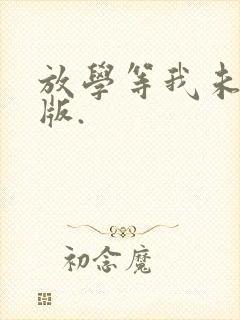 放學等我未
版.
初念魔